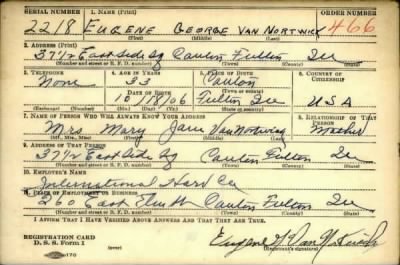 SERIAL NUMBER 1. NAME (Print) ORDER NUMBER
2218 EUGENE GEORGE VAN NORTWICK 466
(First) (Middle) (Last)
2. ADDRESS (Print)
37½ East Side Sq Canton Fulton Ill
(Number and street or R. F. D. number) (Town) (County) (State)
3. TELEPHONE 4. AGE IN YEARS 5. PLACE OF BIRTH 6. COUNTRY OF CITIZENSHIP
None 33 Canton
(Town or county)
DATE OF BIRTH
10/8/06 Fulton Ill USA
(Exchange) (Number) (Mo.) (Day) (Yr.) (State or country)
7. NAME OF PERSON WHO WILL ALWAYS KNOW YOUR ADDRESS 8. RELATIONSHIP OF THAT PERSON
Mrs Mary Jane VanNortwick Mother
(Mr., Mrs., Miss) (First) (Middle) (Last)
9. ADDRESS OF THAT PERSON
37½ East Side Sq Canton Fulton Ill
(Number and street or R. F. D. number) (Town) (County) (State)
10. EMPLOYER'S NAME
International Harv Co
11. PLACE OF EMPLOYMENT OR BUSINESS
260 East Elm St Canton Fulton Ill
(Number and street or R. F. D. number) (Town) (County) (State)
I AFFIRM THAT I HAVE VERIFIED ABOVE ANSWERS AND THAT THEY ARE TRUE.
REGISTRATION CARD
D. S. S. Form 1
Eugene G Van Nortwick
(Registrant's signature)